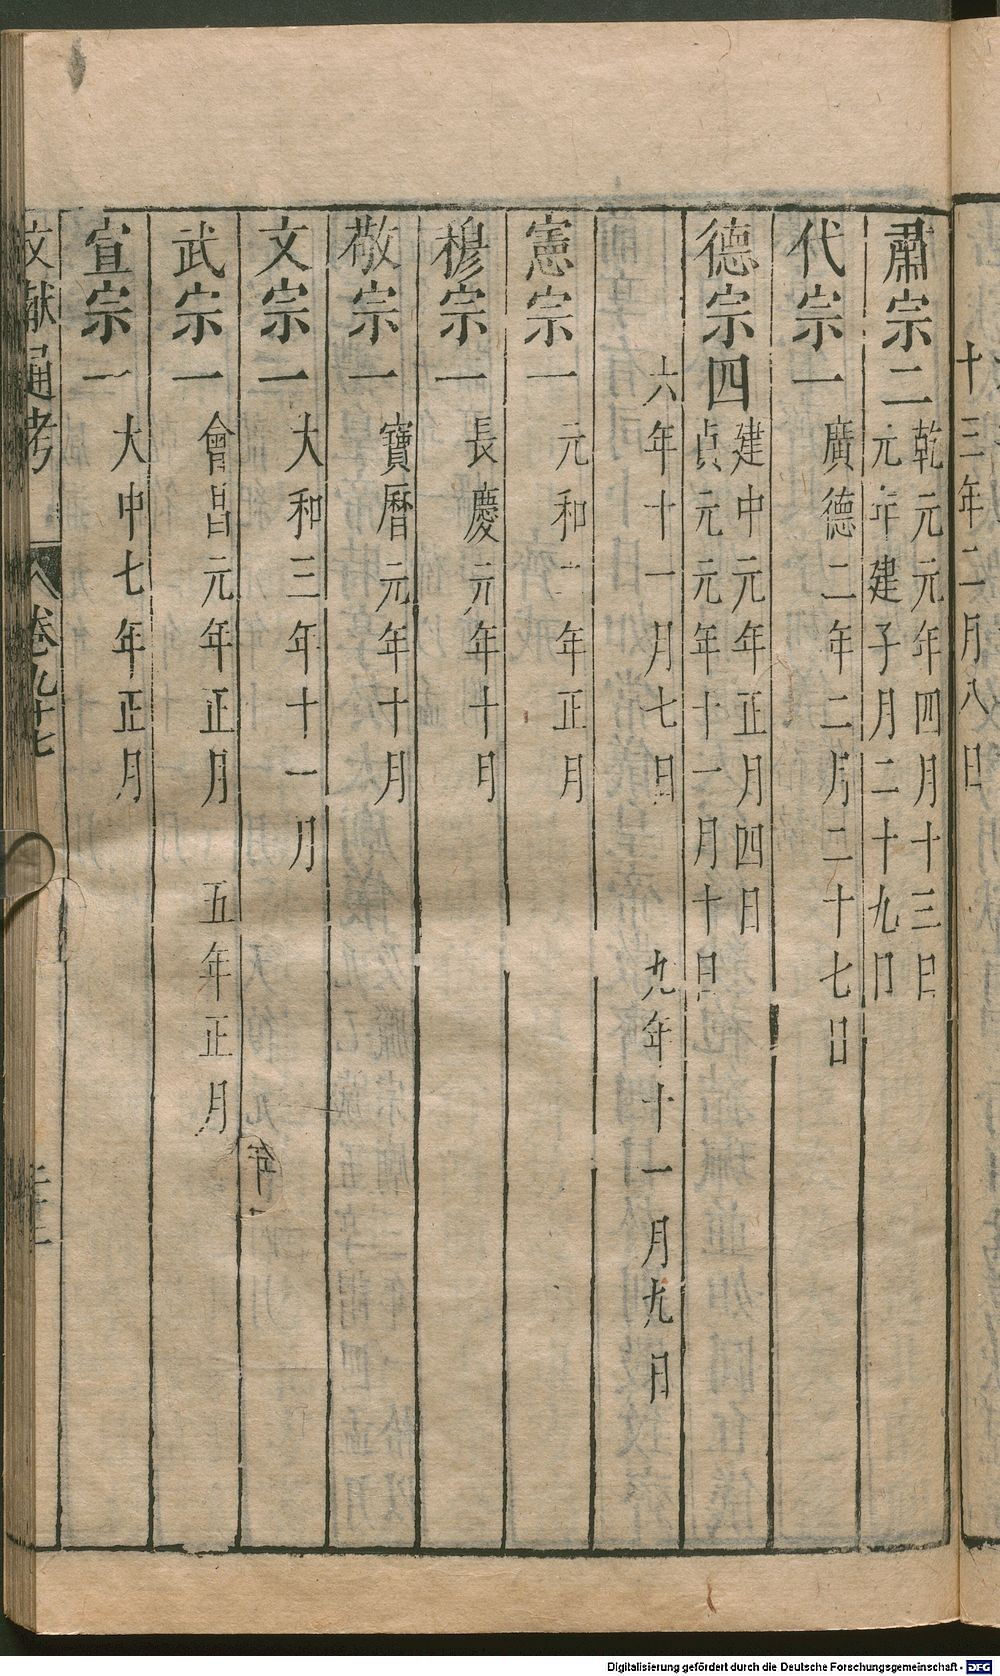 十三年二月八日
肅宗二 乾元元年四月十三日
元年建子月二十九日
代宗一 廣德二年二月二十七日
德宗四 建中元年正月四日
貞元元年十一月十日
六年十一月七日 九年十一月九日
憲宗一 元和二年正月
穆宗一 長慶元年十月
敬宗一 寶曆元年十月
文宗一 大和三年十一月
武宗一 會昌元年正月 五年正月
宣宗一 大中七年正月
文獻通考 卷九十七
Digitalisierung gefördert durch die Deutsche Forschungsgemeinschaft - DFG